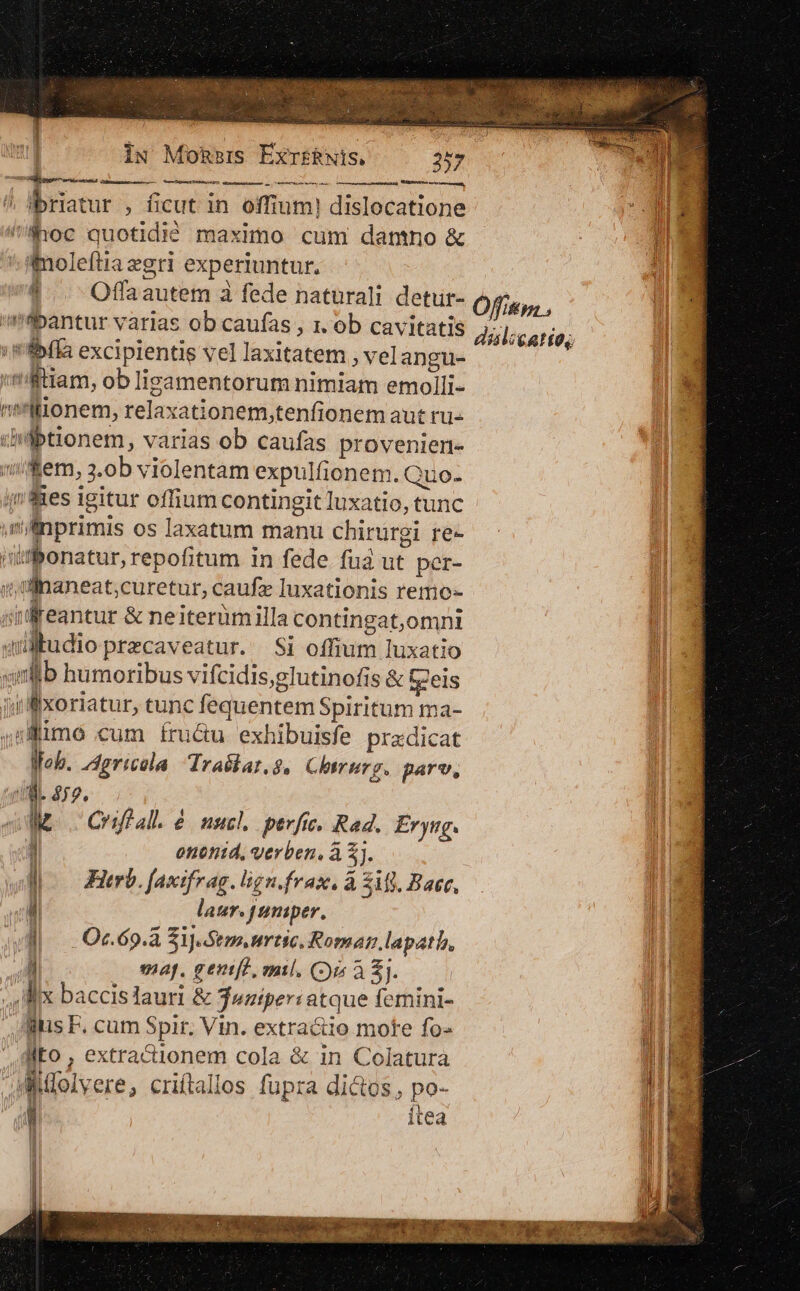 IN MORBIS EXTERNIS. 357
briatur, sicut in ossium) dislocatione
hoc quotidiè maximo cum damno &
molestia ægri experiuntur.
Ossa autem à sede naturali detur-
bantur varias ob causas, 1. ob cavitatis
ossa excipientis vel laxitatem, vel angu-
stiam, ob ligamentorum nimiam emolli-
tionem, relaxationem, tensionem aut ru-
ptionem, varias ob causas provenien-
tem, 3. ob violentam expulsionem. Quo-
ties igitur ossium contingit luxatio, tunc
inprimis os laxatum manu chirurgi re-
ponatur, repositum in sede suâ ut per-
maneat, curetur, causæ luxationis remo-
veantur & ne iterùm illa contingat, omni
studio præcaveatur. Si ossium luxatio
ab humoribus viscidis, glutinosis &
oxoriatur, tunc sequentem Spiritum ma-
ximo cum fructu exhibuisse prædicat
Joh. Agricola Tractat. 8. Chirurg. parv.
859.
℞ Cristall. è nucl. persic. Rad. Eryng.
ononid, verben. à ʒj.
Herb. saxifrag. lign. frax. à ʒiß. Bacc.
laur. juniper.
Oc. 69. à ʒij. Sem. urtic. Roman. lapath.
maj. genist. mil. à ʒj.
Ex baccis lauri & Juniperi atque semini-
bus F. cum Spir. Vin. extractio more so-
lito, extractionem cola & in Colatura
dissolvere, cristallos supra dictos, po-
stea
Ossium
dislocatio,